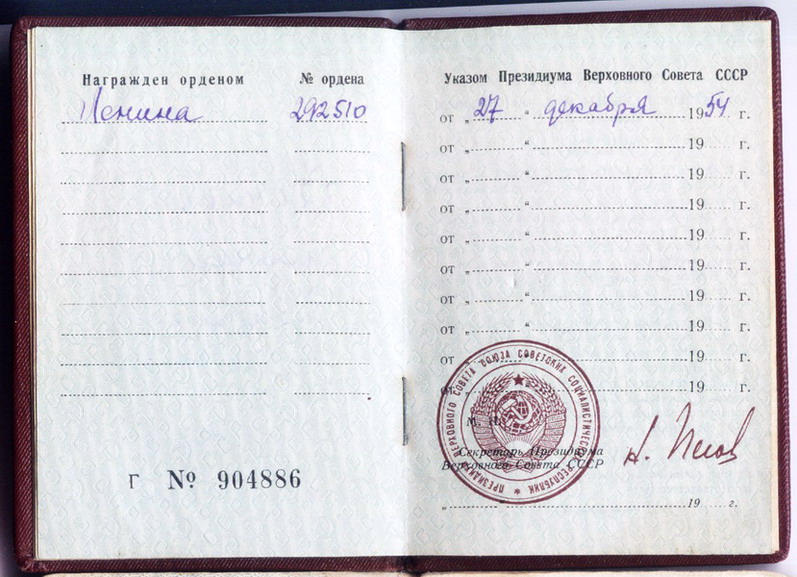 Награжден орденом № ордена
Ленина 292510
Г № 904886
Указом Президиума Верховного Совета СССР
от „27“ декабря 1954 г.
от „ “ 19 г.
от „ “ 19 г.
от „ “ 19 г.
от „ “ 19 г.
от „ “ 19 г.
от „ “ 19 г.
от „ “ 19 г.
от „ “ 19 г.
от „ “ 19 г.
ПРЕЗИДИУМ ВЕРХОВНОГО СОВЕТА СОЮЗА СОВЕТСКИХ СОЦИАЛИСТИЧЕСКИХ РЕСПУБЛИК
М. П.
Секретарь Президиума
Верховного Совета СССР
Н. Пегов
„ 19 г.